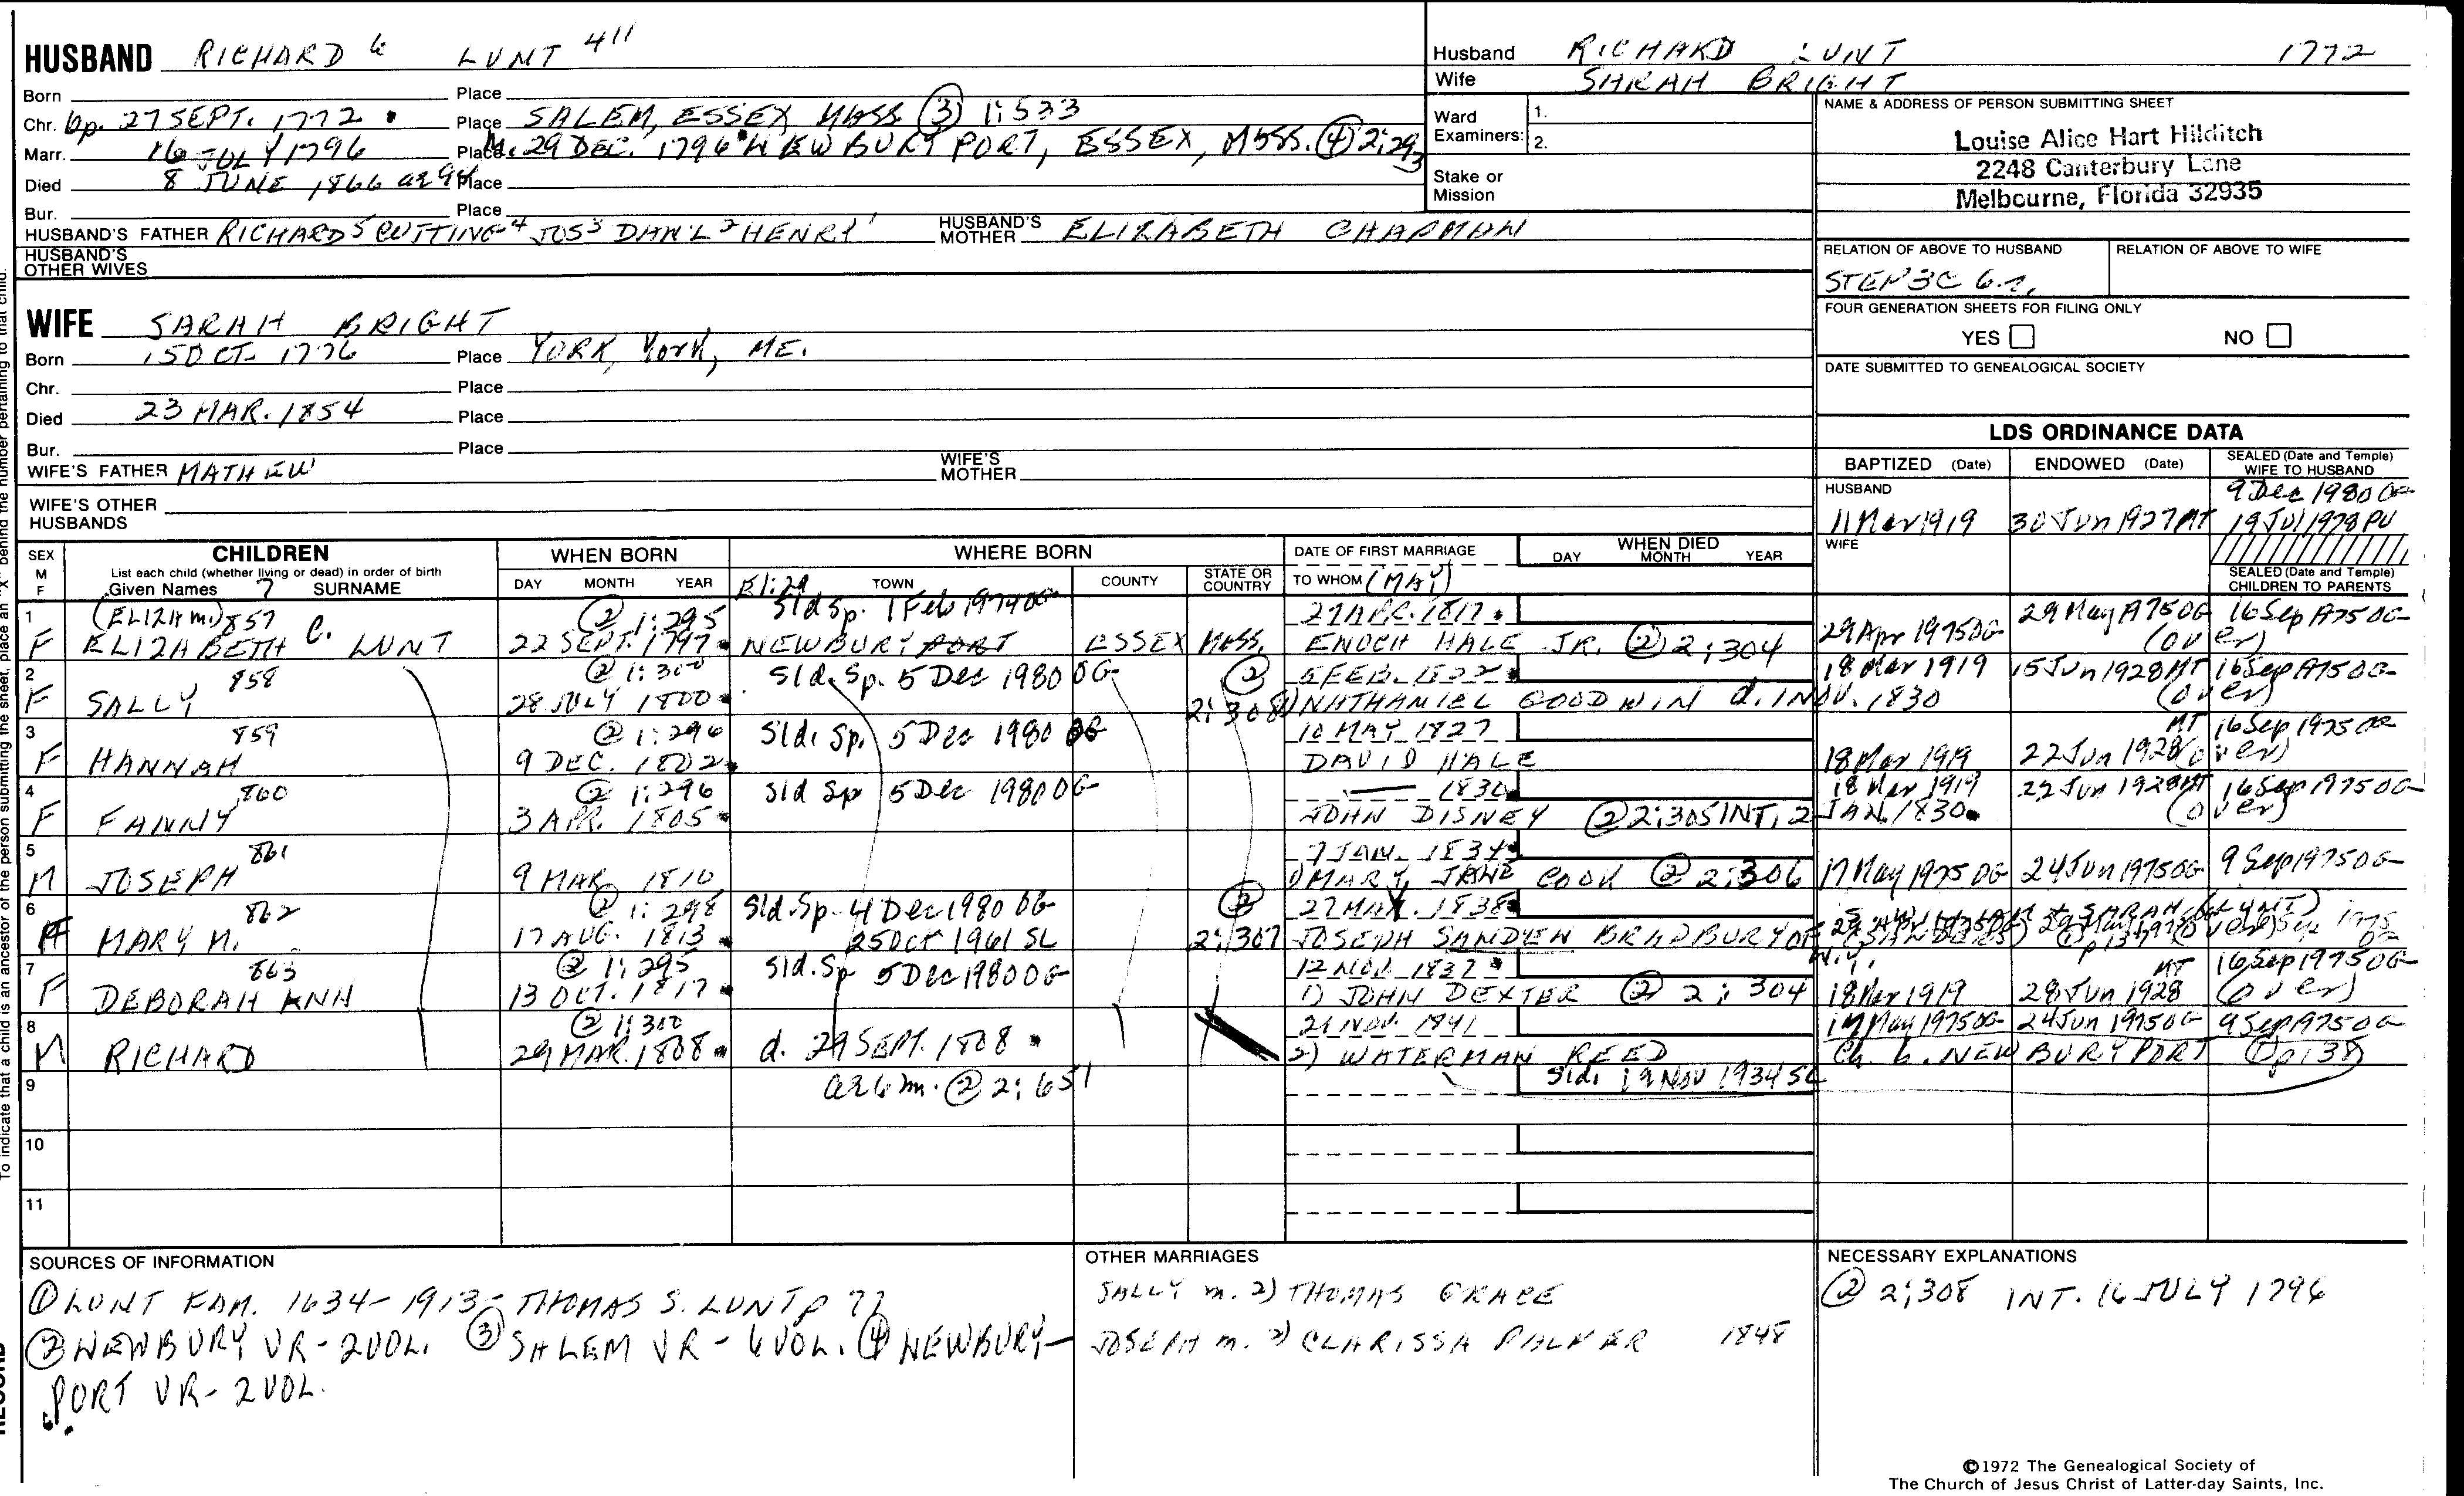 HUSBAND RICHARD 6 LUNT 411
Born Place
Chr. bp. 27 SEPT. 1772 Place SALEM, ESSEX, MASS. (3) 1:533
Marr. 16 JULY 1796 Place M. 29 DEC. 1796 NEWBURYPORT, ESSEX, MASS. (4) 2:293
Died 8 JUNE 1866 ae 94 Place
Bur. Place
HUSBAND'S FATHER RICHARD 5 CUTTING 4 JOS 3 DAN'L 2 HENRY 1 HUSBAND'S MOTHER ELIZABETH CHAPMAN
HUSBAND'S OTHER WIVES
WIFE SARAH BRIGHT
Born 15 OCT. 1776 Place YORK, York, ME.
Chr. Place
Died 23 MAR. 1854 Place
Bur. Place
WIFE'S FATHER MATHEW WIFE'S MOTHER
WIFE'S OTHER HUSBANDS
Husband RICHARD LUNT 1772
Wife SARAH BRIGHT
Ward Examiners: 1.
2.
Stake or Mission
NAME & ADDRESS OF PERSON SUBMITTING SHEET
Louise Alice Hart Hilditch
2248 Canterbury Lane
Melbourne, Florida 32935
RELATION OF ABOVE TO HUSBAND RELATION OF ABOVE TO WIFE
STEP 3C 6
FOUR GENERATION SHEETS FOR FILING ONLY
YES NO
DATE SUBMITTED TO GENEALOGICAL SOCIETY
LDS ORDINANCE DATA
BAPTIZED (Date) ENDOWED (Date) SEALED (Date and Temple) WIFE TO HUSBAND
HUSBAND 9 Dec 1980 OG
11 Mar 1919 30 Jun 1927 MT 19 Jul 1978 PV
WIFE
SEALED (Date and Temple) CHILDREN TO PARENTS
SEX M F CHILDREN WHEN BORN WHERE BORN DATE OF FIRST MARRIAGE WHEN DIED
List each child (whether living or dead) in order of birth
Given Names SURNAME DAY MONTH YEAR TOWN COUNTY STATE OR COUNTRY TO WHOM (MAY) DAY MONTH YEAR
1 (ELIZA m.) 857 (2) 1:295 Sld Sp. 1 Feb 1974 OG 27 1817 29 May 1975 OG 16 Sep 1975 OG
F ELIZABETH C. LUNT 22 SEPT. 1797 NEWBURYPORT ESSEX MASS. ENOCH HALE JR. (2) 2:304 29 Apr 1975 OG (over)
2 858 (2) 1:300 Sld. Sp. 5 Dec 1980 OG (2) FEB. 18 Mar 1919 15 Jun 1928 MT 16 Sep 1975 OG
F SALLY 28 JULY 1800 2:308 1) NATHANIEL GOODWIN d. 1 NOV. 1830 (over)
3 859 (2) 1:296 Sld. Sp. 5 Dec 1980 OG 10 MAY 1827 MT 16 Sep 1975 OG
F HANNAH 9 DEC. 1802 DAVID HALE 18 Mar 1919 22 Jun 1928 (over)
4 860 (2) 1:296 Sld Sp 5 Dec 1980 OG 1830 18 Mar 1919 22 Jun 1928 MT 16 Sep 1975 OG
F FANNY 3 APR. 1805 JOHN DISNEY (2) 2:305 INT, 2 JAN. 1830 (over)
5 861 7 JAN. 1834
M JOSEPH 9 MAR 1810 1) MARY JANE COOK (2) 2:306 17 May 1975 OG 24 Jun 1975 OG 9 Sep 1975 OG
6 862 (2) 1:298 Sld. Sp. 4 Dec 1980 OG (2) 27 MAY. 1838
F MARY M. 17 AUG. 1813 25 Oct 1961 SL 2:307 JOSEPH BRADBURY OF N.Y.
7 863 (2) 1:295 Sld. Sp 5 Dec 1980 OG 12 NOV. 1837 MT 16 Sep 1975 OG
F DEBORAH ANN 13 OCT. 1817 1) JOHN DEXTER (2) 2:304 18 Mar 1919 28 Jun 1928 (over)
8 (2) 1:300 21 NOV. 1841 17 May 1975 OG 24 Jun 1975 OG 9 Sep 1975 OG
M RICHARD 29 MAR. 1808 d. 29 SEPT. 1808 2) WATERMAN REED Ch. 6. NEWBURYPORT
9 ae 6 m. (2) 2:651 Sld. 19 Nov 1934 SL
10
11
SOURCES OF INFORMATION
(1) LUNT FAM. 1634-1913 - THOMAS S. LUNT p 77
(2) NEWBURY VR - 2 VOL. (3) SALEM VR - 6 VOL. (4) NEWBURY-
PORT VR - 2 VOL.
OTHER MARRIAGES
SALLY m. 2) THOMAS GRACE
JOSEPH m. 2) CLARISSA PALMER 1848
NECESSARY EXPLANATIONS
(2) 2:308 INT. 16 JULY 1796
©1972 The Genealogical Society of
The Church of Jesus Christ of Latter-day Saints, Inc.
To indicate that a child is an ancestor of the person submitting the sheet, place an "X" behind the number pertaining to that child.